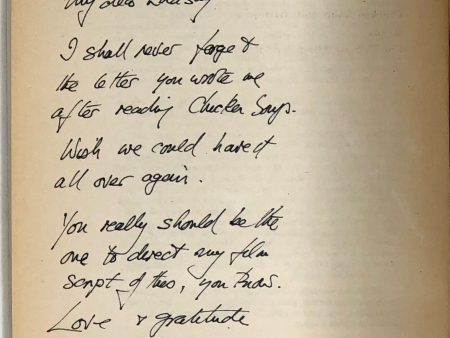 My dear Lindsay
I shall never forget
the letter you wrote me
after reading Chicken Soup.
Wish we could have it
all over again.
You really should be the
one to direct any film
script of this, you know.
Love & gratitude